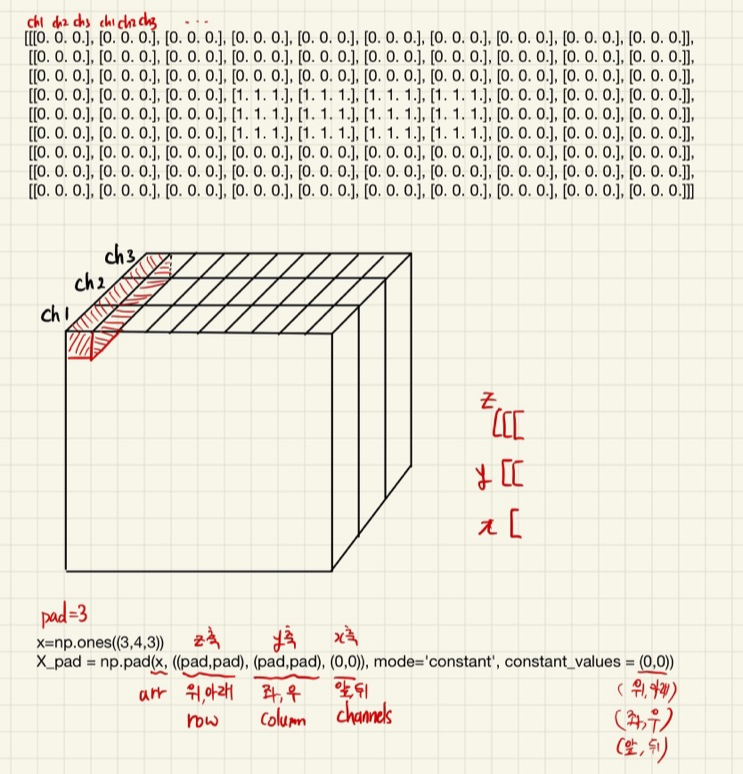 ch1 ch2 ch3 ch1 ch2 ch3 ...
[[[0. 0. 0.], [0. 0. 0.], [0. 0. 0.], [0. 0. 0.], [0. 0. 0.], [0. 0. 0.], [0. 0. 0.], [0. 0. 0.], [0. 0. 0.], [0. 0. 0.]],
[[0. 0. 0.], [0. 0. 0.], [0. 0. 0.], [0. 0. 0.], [0. 0. 0.], [0. 0. 0.], [0. 0. 0.], [0. 0. 0.], [0. 0. 0.], [0. 0. 0.]],
[[0. 0. 0.], [0. 0. 0.], [0. 0. 0.], [0. 0. 0.], [0. 0. 0.], [0. 0. 0.], [0. 0. 0.], [0. 0. 0.], [0. 0. 0.], [0. 0. 0.]],
[[0. 0. 0.], [0. 0. 0.], [0. 0. 0.], [1. 1. 1.], [1. 1. 1.], [1. 1. 1.], [1. 1. 1.], [0. 0. 0.], [0. 0. 0.], [0. 0. 0.]],
[[0. 0. 0.], [0. 0. 0.], [0. 0. 0.], [1. 1. 1.], [1. 1. 1.], [1. 1. 1.], [1. 1. 1.], [0. 0. 0.], [0. 0. 0.], [0. 0. 0.]],
[[0. 0. 0.], [0. 0. 0.], [0. 0. 0.], [1. 1. 1.], [1. 1. 1.], [1. 1. 1.], [1. 1. 1.], [0. 0. 0.], [0. 0. 0.], [0. 0. 0.]],
[[0. 0. 0.], [0. 0. 0.], [0. 0. 0.], [0. 0. 0.], [0. 0. 0.], [0. 0. 0.], [0. 0. 0.], [0. 0. 0.], [0. 0. 0.], [0. 0. 0.]],
[[0. 0. 0.], [0. 0. 0.], [0. 0. 0.], [0. 0. 0.], [0. 0. 0.], [0. 0. 0.], [0. 0. 0.], [0. 0. 0.], [0. 0. 0.], [0. 0. 0.]],
[[0. 0. 0.], [0. 0. 0.], [0. 0. 0.], [0. 0. 0.], [0. 0. 0.], [0. 0. 0.], [0. 0. 0.], [0. 0. 0.], [0. 0. 0.], [0. 0. 0.]]]
ch3
ch2
ch1
z [[[
y [[
x [
pad=3
x=np.ones((3,4,3)) z축 y축 x축
X_pad = np.pad(x, ((pad,pad), (pad,pad), (0,0)), mode='constant', constant_values = (0,0))
arr 위,아래 좌,우 앞,뒤 (위,아래)
row column channels (좌,우)
(앞,뒤)